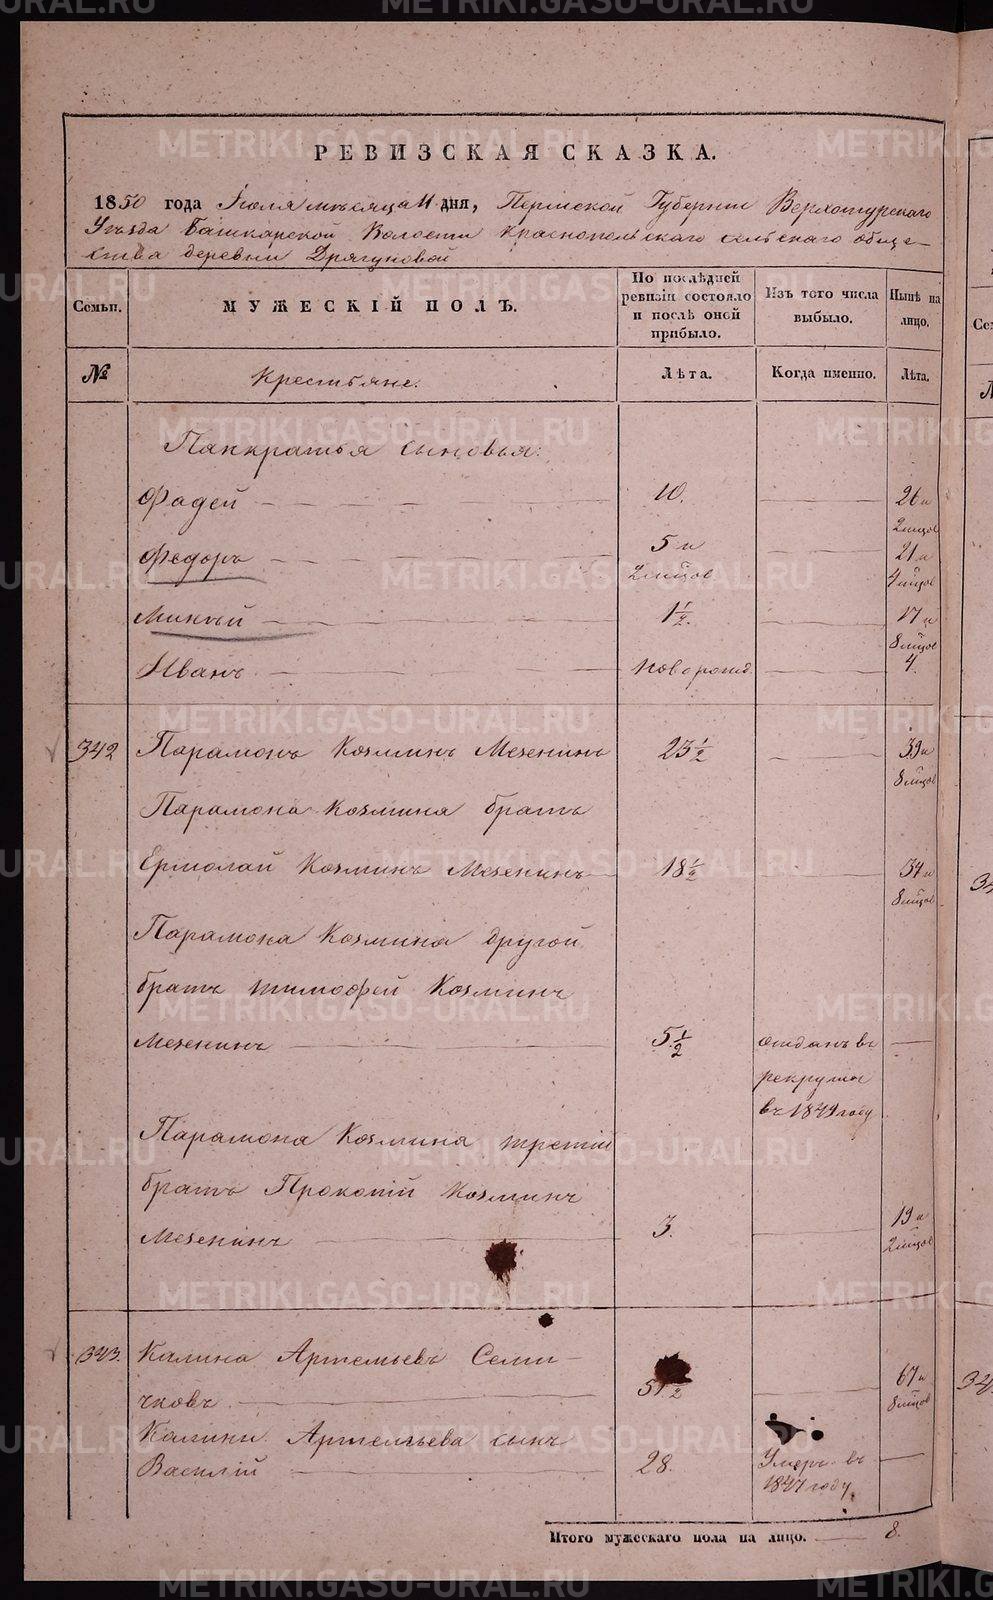 РЕВИЗСКАЯ СКАЗКА.
1850 года Июля месяца 11 дня, Пермской Губернии Верхотурскаго
Уезда Башкарской Волости Краснопольскаго сельскаго обще-
ства деревни Дрягуновой
Семьи. МУЖЕСКІЙ ПОЛЪ. По послѣдней ревизіи состояло и послѣ оной прибыло. Изъ того числа выбыло. Нынѣ на лицо.
№ Крестьяне. Лѣта. Когда именно. Лѣта.
Панкратья сыновья:
Фадей 10. 26 и
2 мцов
Федоръ 5 и 21 и
2 мцов 4 мцов
Минѣй 1 1/2. 17 и
8 мцов
Иванъ новорожд. 4.
342 Парамонъ Козминъ Мезенинъ 23 1/2 39 и
8 мцов
Парамона Козмина братъ
Ермолай Козминъ Мезенинъ 18 1/2 34 и
8 мцов
Парамона Козмина другой
братъ тимофей Козминъ
Мезенинъ 5 1/2 отданъ въ
рекруты
въ 1849 году
Парамона Козмина третій
братъ Прокопій Козминъ 19 и
Мезенинъ 3. 2 мцов
343. Калина Артемьевъ Семи- 67 и
чковъ 51 1/2 8 мцов
Калины Артемьева сынъ
Василій 28. Умеръ въ
1847 году
Итого мужескаго пола на лицо. 8.
METRIKI.GASO-URAL.RU